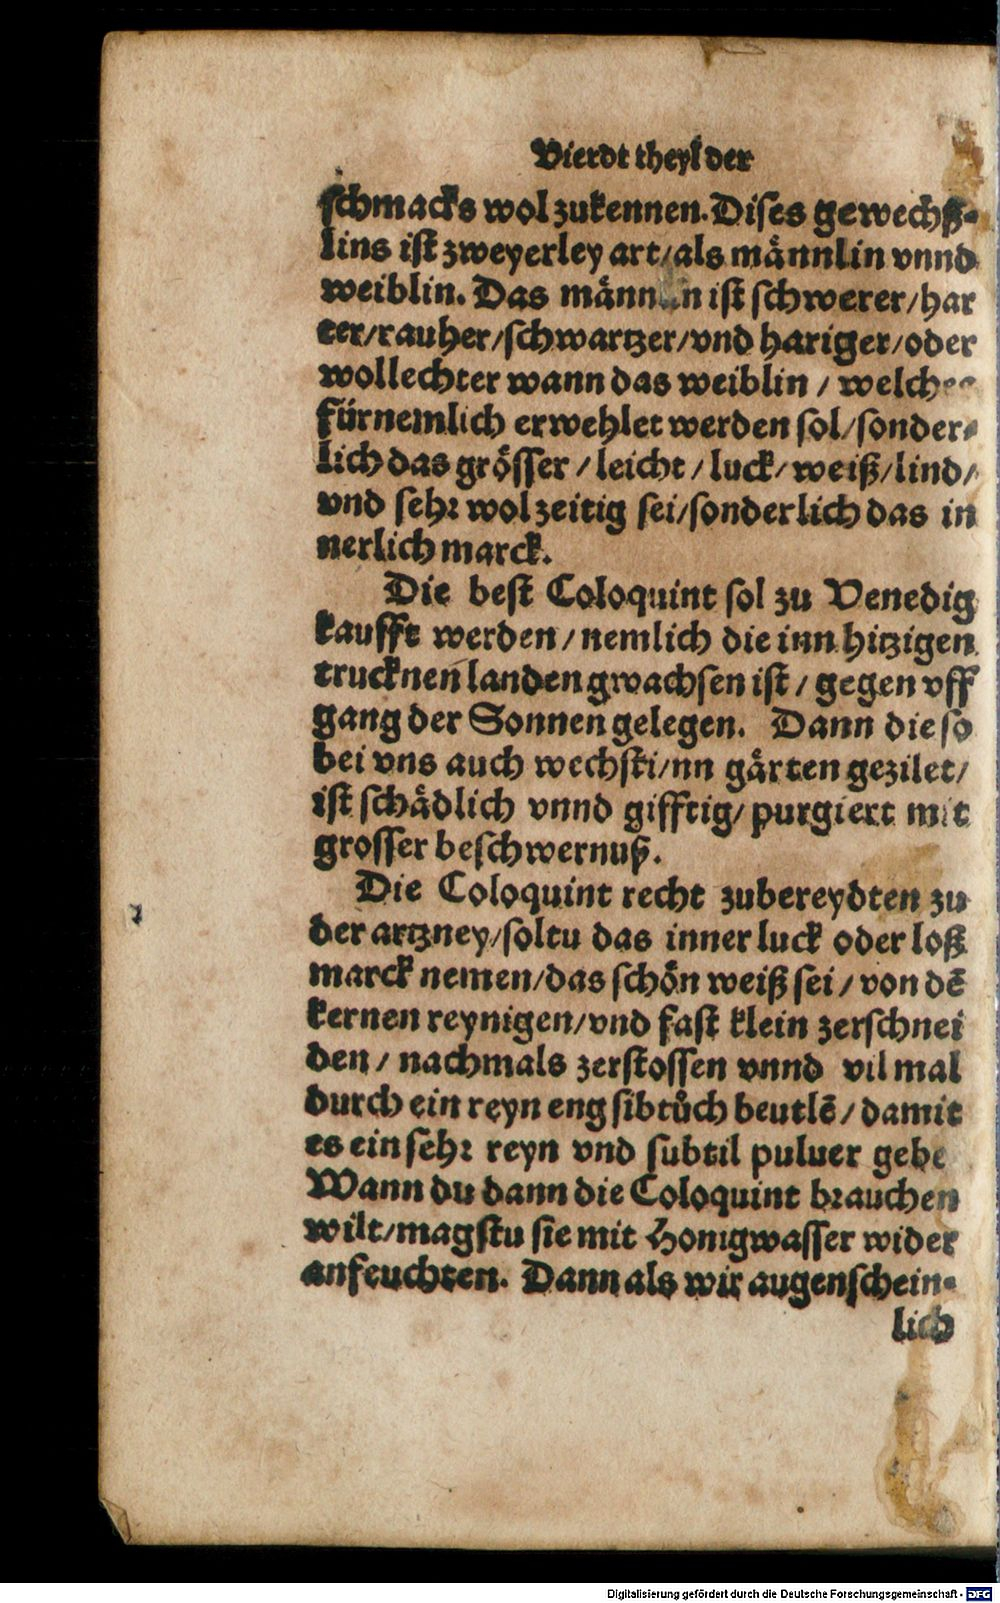 Vierdt theyl der
schmacks wol zukennen. Dises gewechß-
lins ist zweyerley art/als männlin vnnd
weiblin. Das männlin ist schwerer/har
ter/rauher/schwartzer/vnd hariger/oder
wollechter wann das weiblin / welches
fürnemlich erwehlet werden sol/sonder-
lich das grösser / leicht / luck/ weiß/lind/
vnd sehr wol zeitig sei/sonderlich das in
nerlich marck.
Die best Coloquint sol zu Venedig
kaufft werden/nemlich die inn hitzigen
trucknen landen gwachsen ist/ gegen vff
gang der Sonnen gelegen. Dann die so
bei vns auch wechsti/nn gärten gezilet/
ist schädlich vnnd gifftig/ purgiert mit
grosser beschwernuß.
Die Coloquint recht zubereydten zu
der artzney/soltu das inner luck oder loß
marck nemen/das schön weiß sei/ von dē
kernen reynigen/vnd fast klein zerschnei
den/ nachmals zerstossen vnnd vil mal
durch ein reyn eng sibtůch beutlē/damit
es ein sehr reyn vnd subtil puluer gebe
Wann du dann die Coloquint brauchen
wilt/magstu sie mit Honigwasser wider
anfeuchten. Dann als wir augenschein-
lich
Digitalisierung gefördert durch die Deutsche Forschungsgemeinschaft - DFG